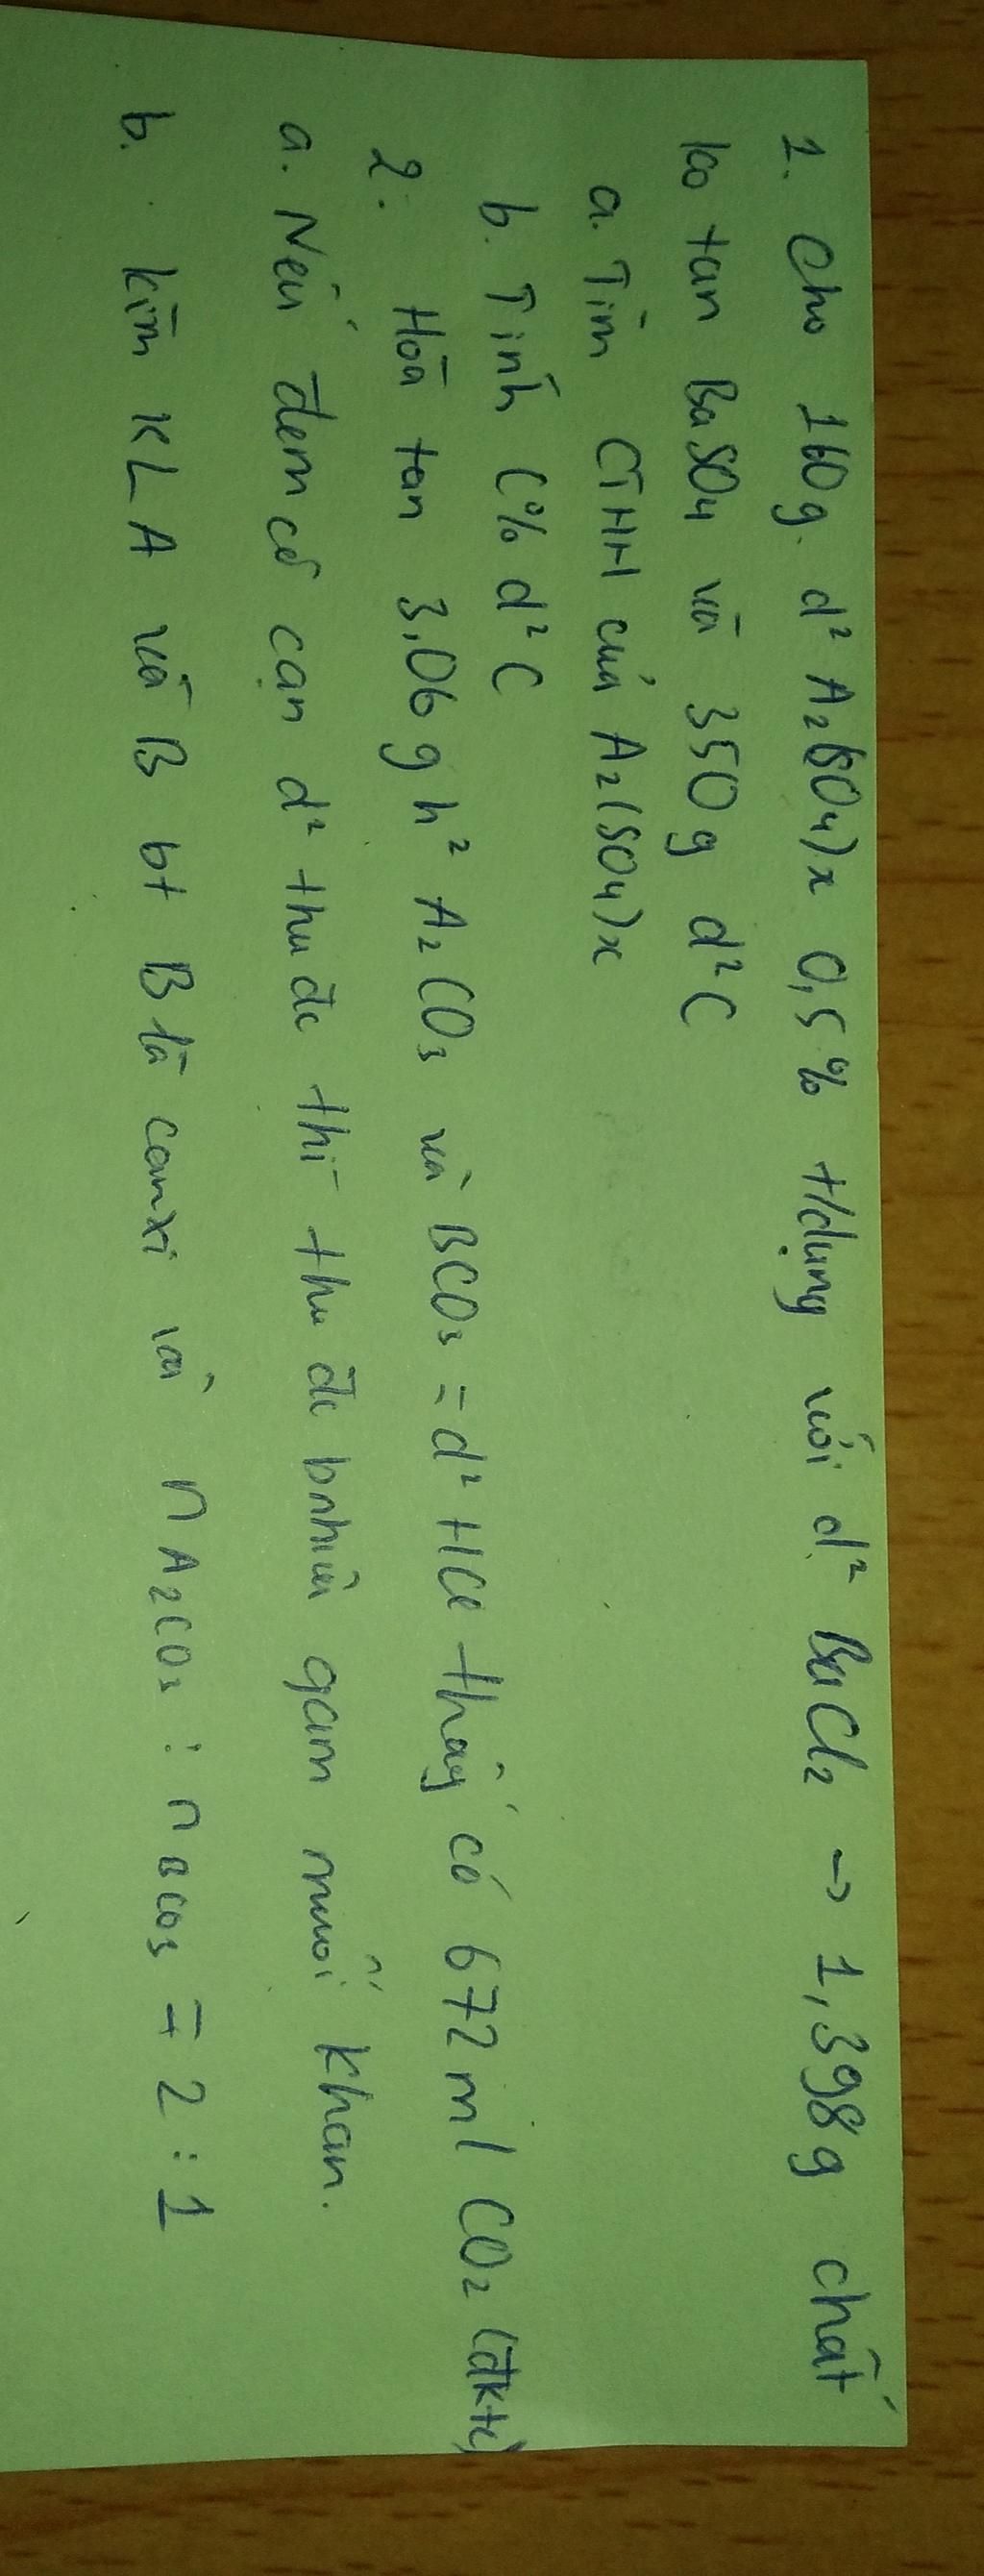 1. Cho 160g d² A₂(SO₄)x 0,5% t/dụng với d² BaCl₂ → 1,398g chất
ko tan BaSO₄ và 350g d² C
a. Tìm CTHH của A₂(SO₄)x
b. Tính C% d² C
2. Hòa tan 3,06g h² A₂CO₃ và BCO₃ = d² HCl thấy có 672ml CO₂ (đktc)
a. Nếu đem cô cạn d² thu đc thì thu đc bnhiêu gam muối khan.
b. kim KL A và B bt B là canxi và n A₂CO₃ : n BCO₃ = 2 : 1